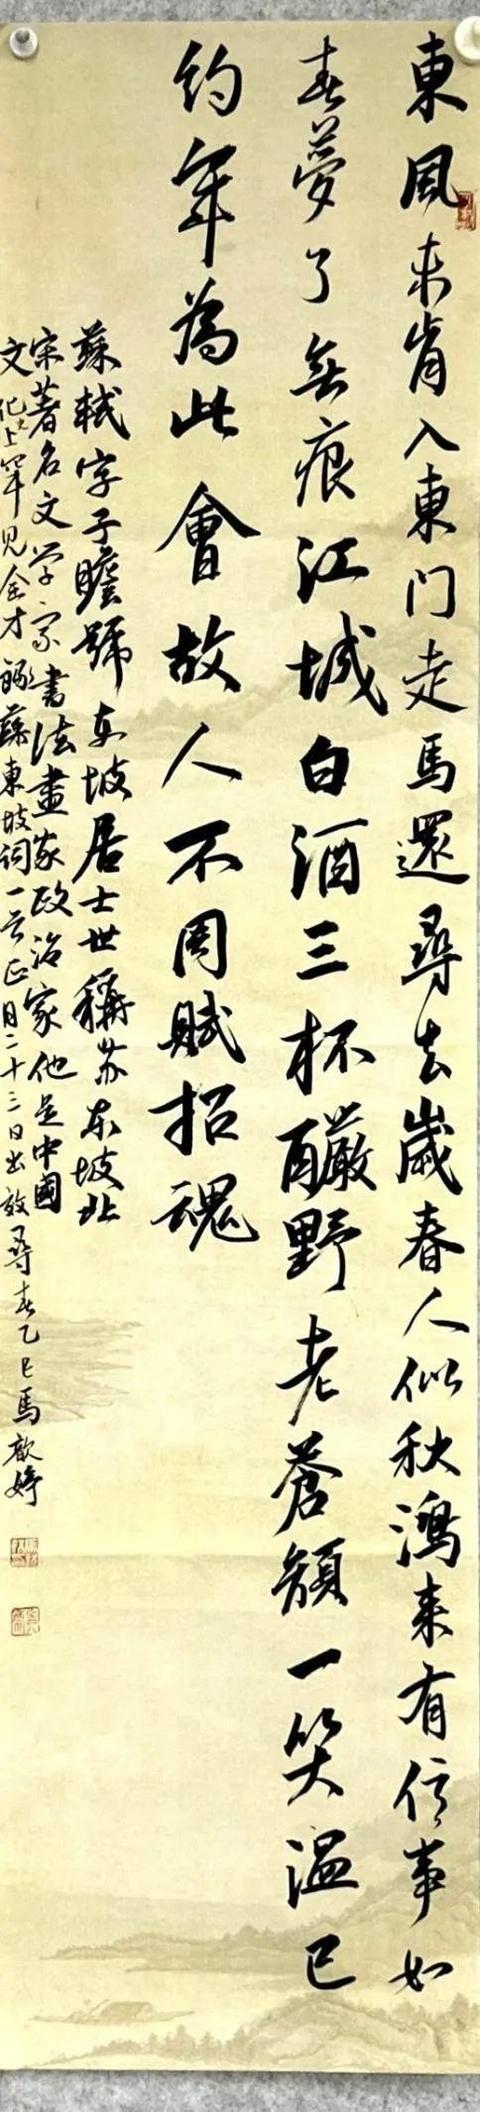 東風未肯入東門走馬還尋去歲春人似秋鴻来有信事如
春夢了無痕江城白酒三杯釅野老蒼顏一笑温已
約年為此會故人不用賦招魂
蘇軾字子瞻號东坡居士世稱苏东坡北
宋著名文学家書法畫家政治家他是中國
文化史上罕見全才 蘇東坡词一首正月二十三日出 尋春乙巳馬歆婷